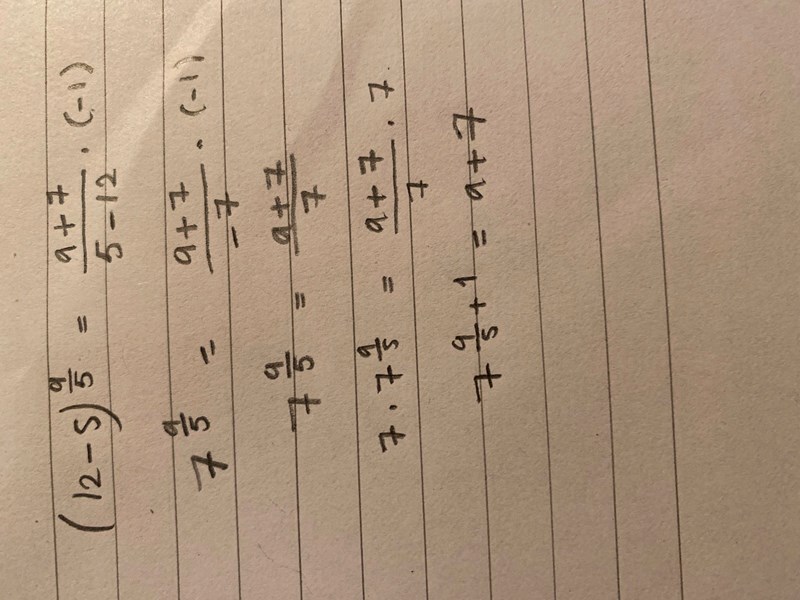 (12-5)^(a/5) = (a+7)/(5-12) · (-1)
7^(a/5) = (a+7)/(-7) · (-1)
7^(a/5) = (a+7)/7
7 · 7^(a/5) = (a+7)/7 · 7
7^(a/5 + 1) = a+7